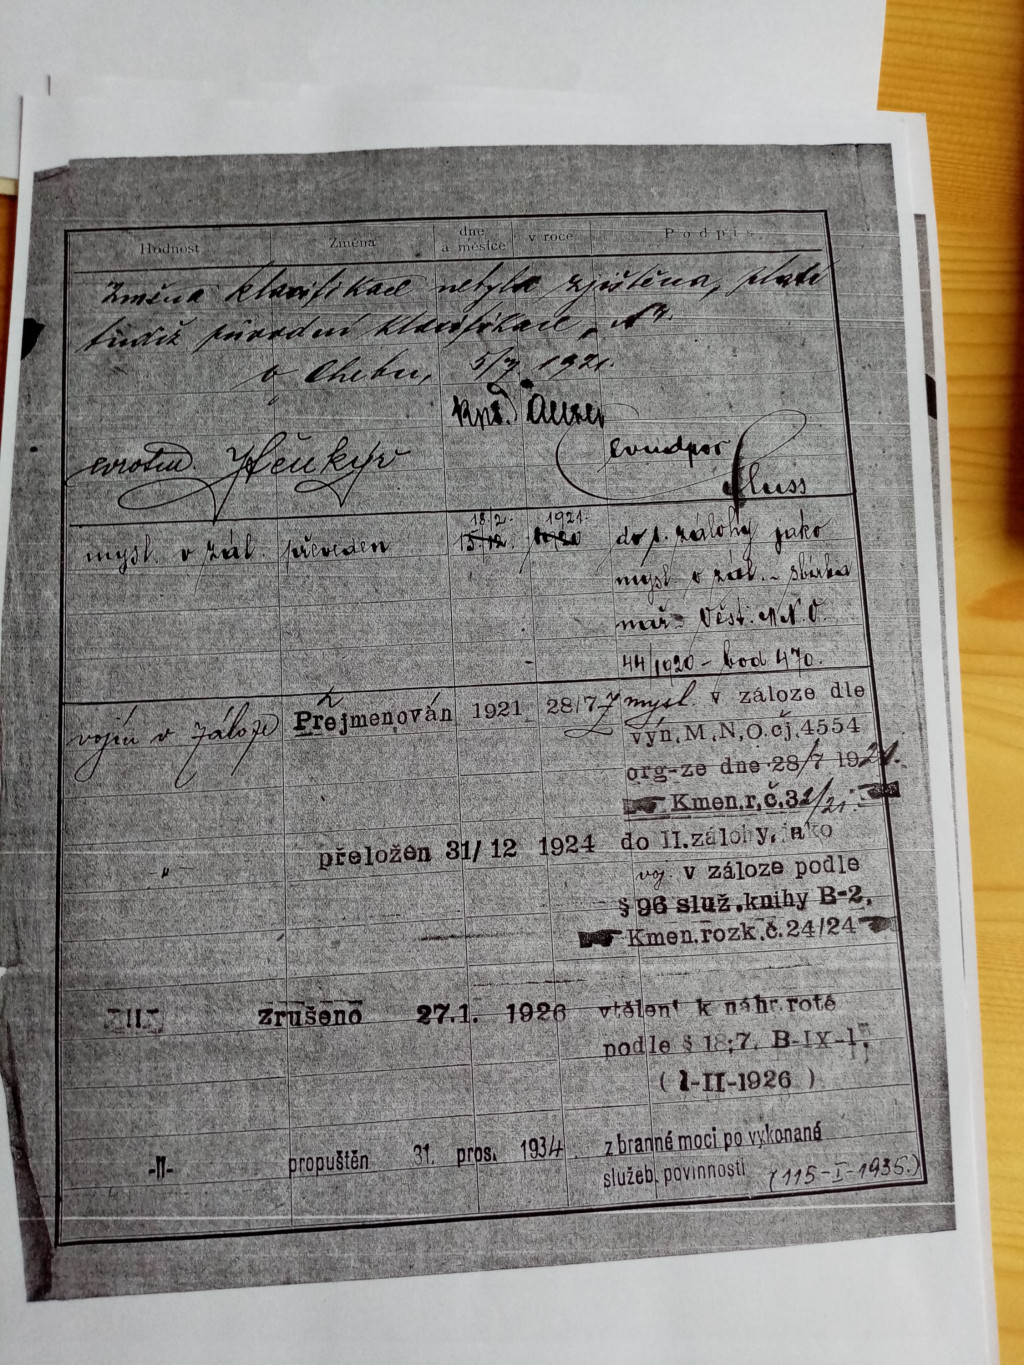 Hodnost Změna dne a měsíce v roce Podpis
Změna klasifikace nebyla zjištěna, platí
tudíž původní klasifikace
v Chebu, 5/7. 1921.
kpt.
evidpor
mysl. v zál. převeden 15.12. 18/2. 1920 1921. do p. zálohy jako
mysl. v zál. - sbírka
nař. Věst. M.N.O.
44/1920 - bod 470.
vojín v záloze Přejmenován 1921 28/7 z mysl. v záloze dle
výn.M.N.O.čj.4554
org-ze dne 28/7 1921.
Kmen.r.č.32/21.
" přeložen 31/12 1924 do II.zálohy,jako
voj. v záloze podle
§ 96 služ.knihy B-2.
Kmen.rozk.č.24/24
-II- Zrušeno 27.1. 1926 vtělení k náhr.rotě
podle § 18;7. B-IX-1;
( 1-II-1926 )
-II- propuštěn 31. pros. 1934. z branné moci po vykonané
služeb. povinnosti (115-I-1935.)